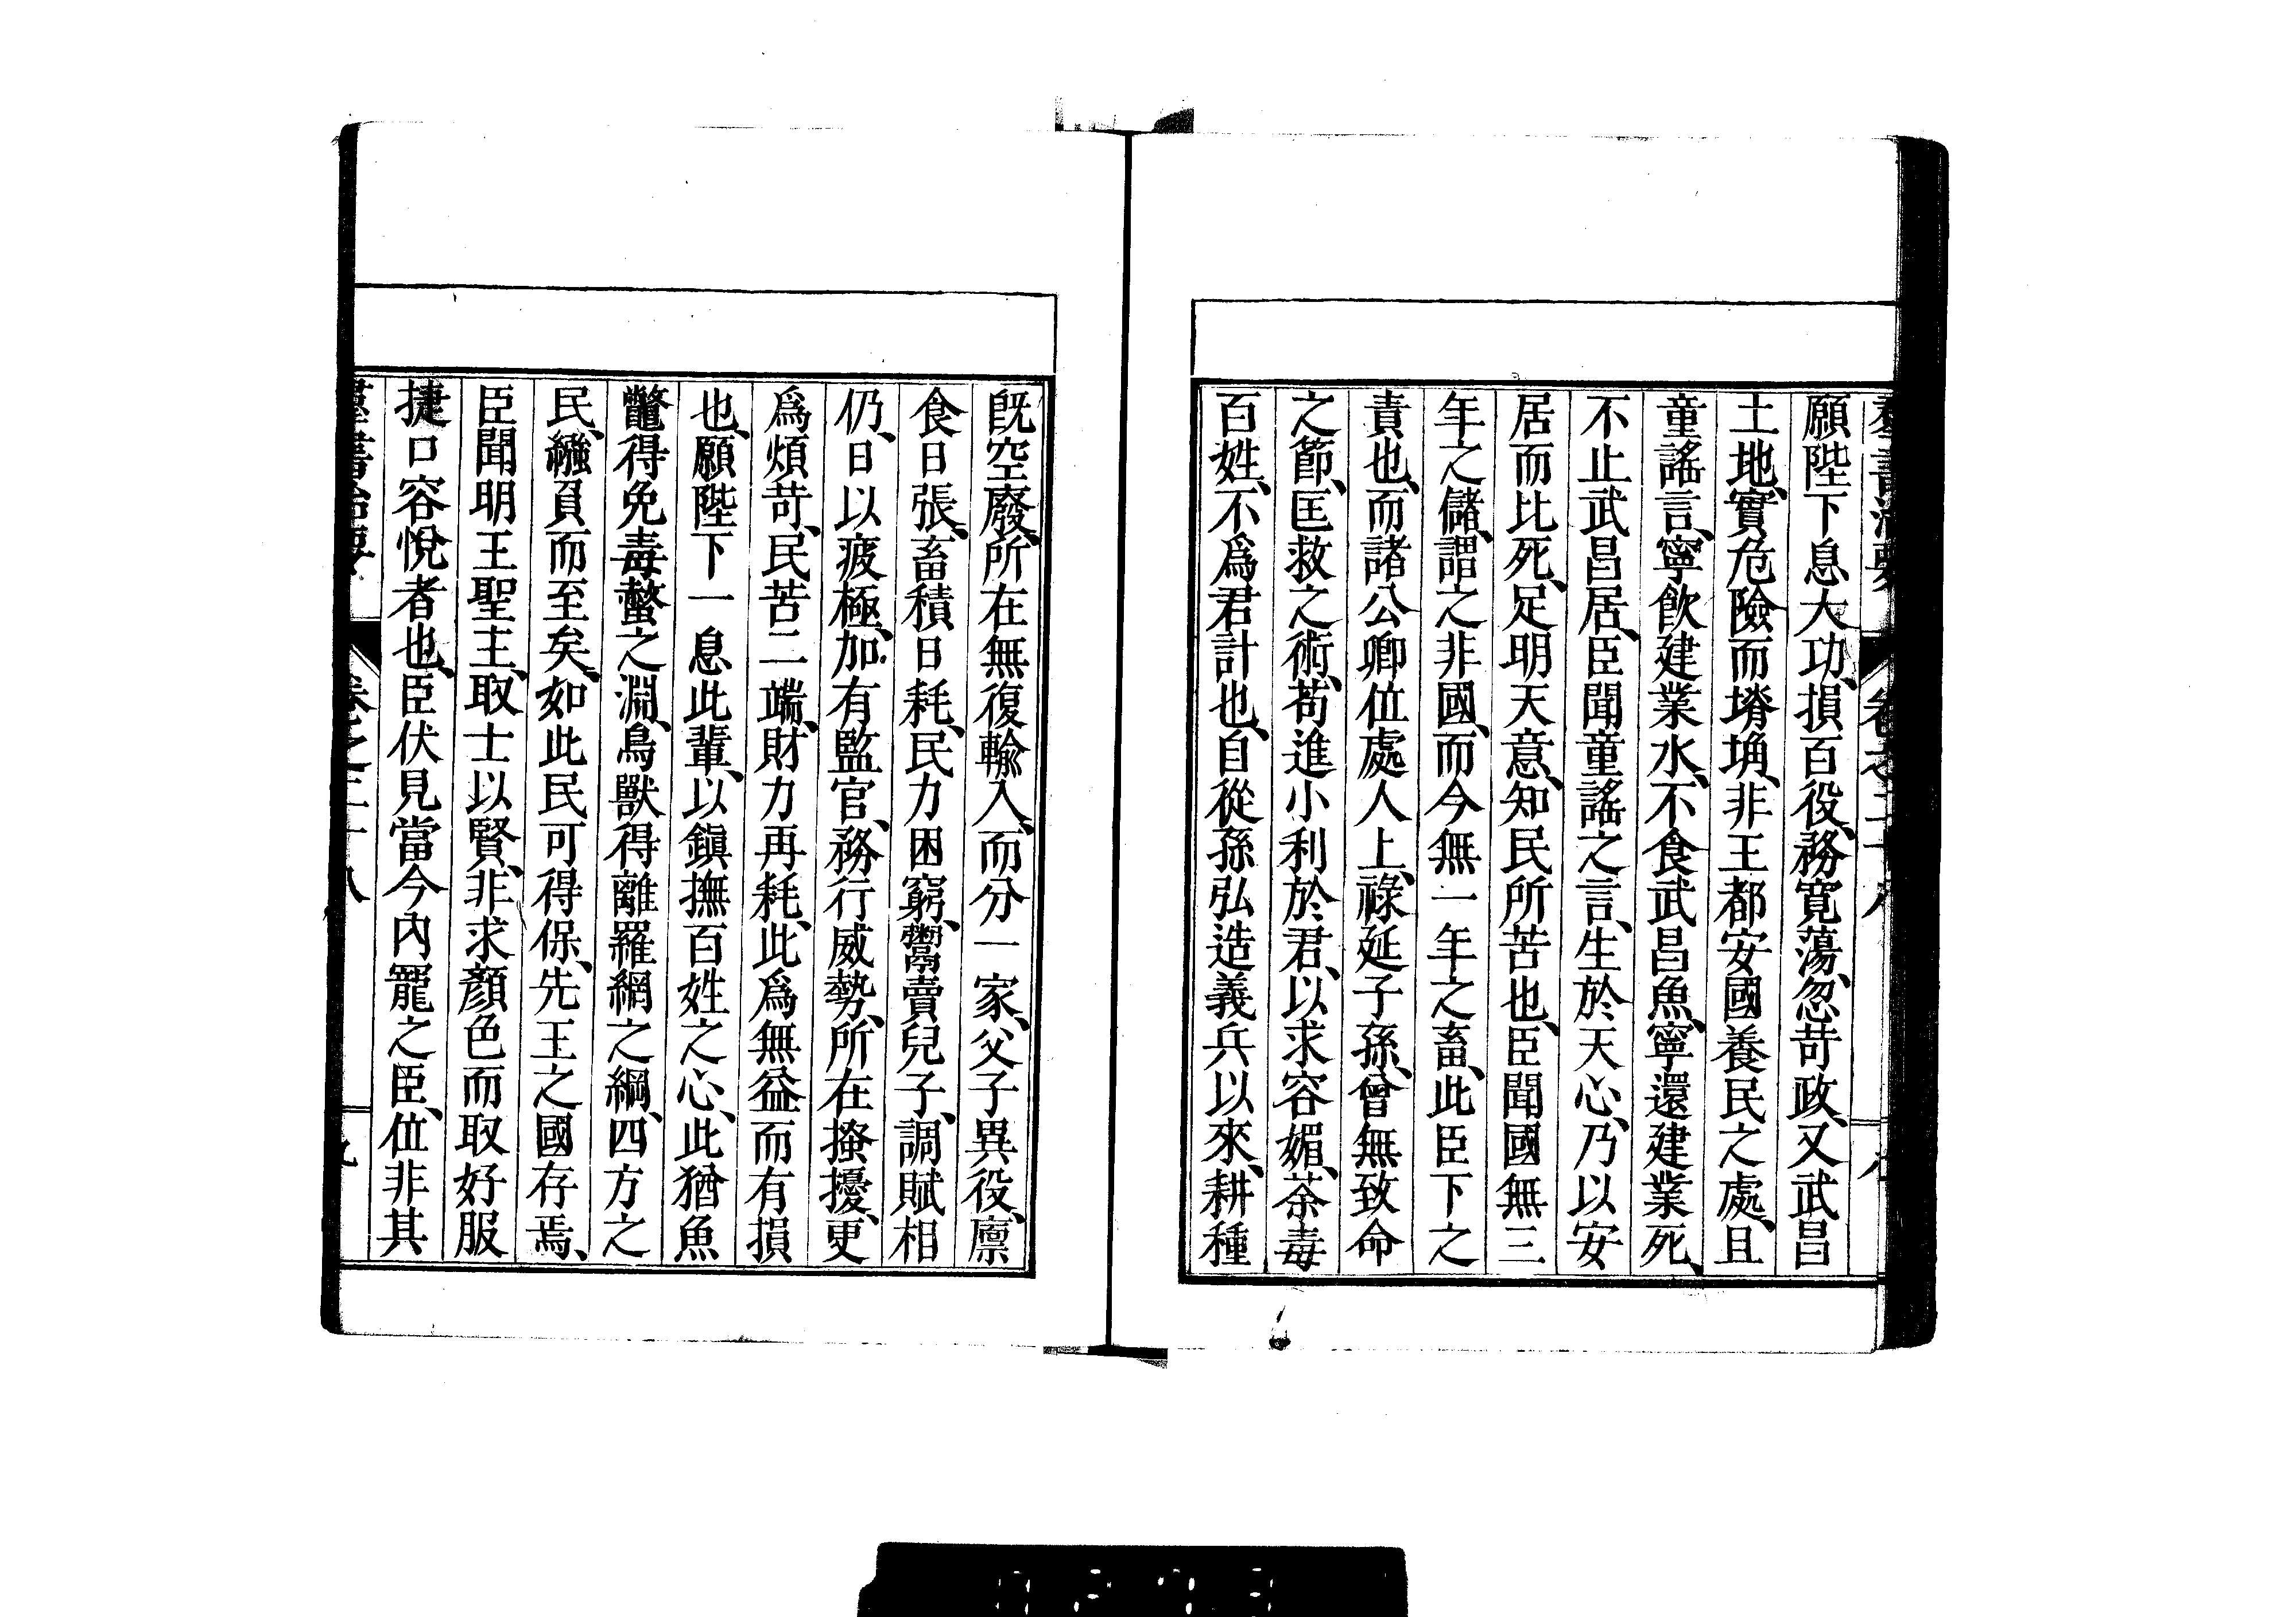 願陛下息大功、損百役、務寬蕩、忽苛政、又武昌
土地、實危險而塉埆、非王都安國養民之處、且
童謠言、寧飲建業水、不食武昌魚、寧還建業死、
不止武昌居、臣聞童謠之言、生於天心、乃以安
居而比死、足明天意、知民所苦也、臣聞國無三
年之儲、謂之非國、而今無一年之畜、此臣下之
責也、而諸公卿位處人上、祿延子孫、曾無致命
之節、匡救之術、苟進小利於君、以求容媚、荼毒
百姓、不爲君計也、自從孫弘造義兵以來、耕種
既空廢、所在無復輸入、而分一家、父子異役、廩
食日張、畜積日耗、民力困窮、鬻賣兒子、調賦相
仍、日以疲極、加有監官、務行威勢、所在搔擾、更
爲煩苛、民苦二端、財力再耗、此爲無益而有損
也、願陛下一息此輩、以鎭撫百姓之心、此猶魚
鼈得免毒螫之淵、鳥獸得離羅網之綱、四方之
民、繈負而至矣、如此民可得保、先王之國存焉、
臣聞明王聖主、取士以賢、非求顏色而取好服
捷口容悅者也、臣伏見當今內寵之臣、位非其